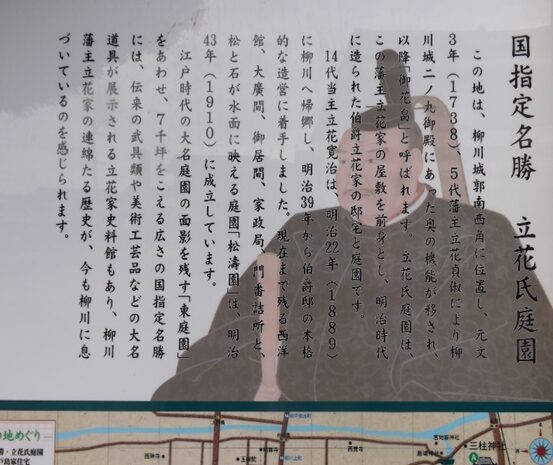 国指定名勝 立花氏庭園
この地は、柳川城郭南西角に位置し、元文
3年(1738)、5代藩主立花貞俶により柳
川城二ノ丸御殿にあった奥の機能が移され、
以降「御花畠」と呼ばれます。立花氏庭園は、
この藩主立花家の屋敷を前身とし、明治時代
に造られた伯爵立花家の邸宅と庭園です。
14代当主立花寛治は、明治22年(1889)
に柳川へ帰郷し、明治39年から伯爵邸の本格
的な造営に着手しました。現在まで残る西洋
館、大廣間、御居間、家政局、門番詰所と、
松と石が水面に映える庭園「松濤園」は、明治
43年(1910)に成立しています。
江戸時代の大名庭園の面影を残す「東庭園」
をあわせ、7千坪をこえる広さの国指定名勝
には、伝来の武具類や美術工芸品などの大名
道具が展示される立花家史料館もあり、柳川
藩主立花家の連綿たる歴史が、今も柳川に息
づいているのを感じられます。
の地めぐり
勝・立花氏庭園
戸島家住宅
西琳寺
西覚寺
三柱神社
A